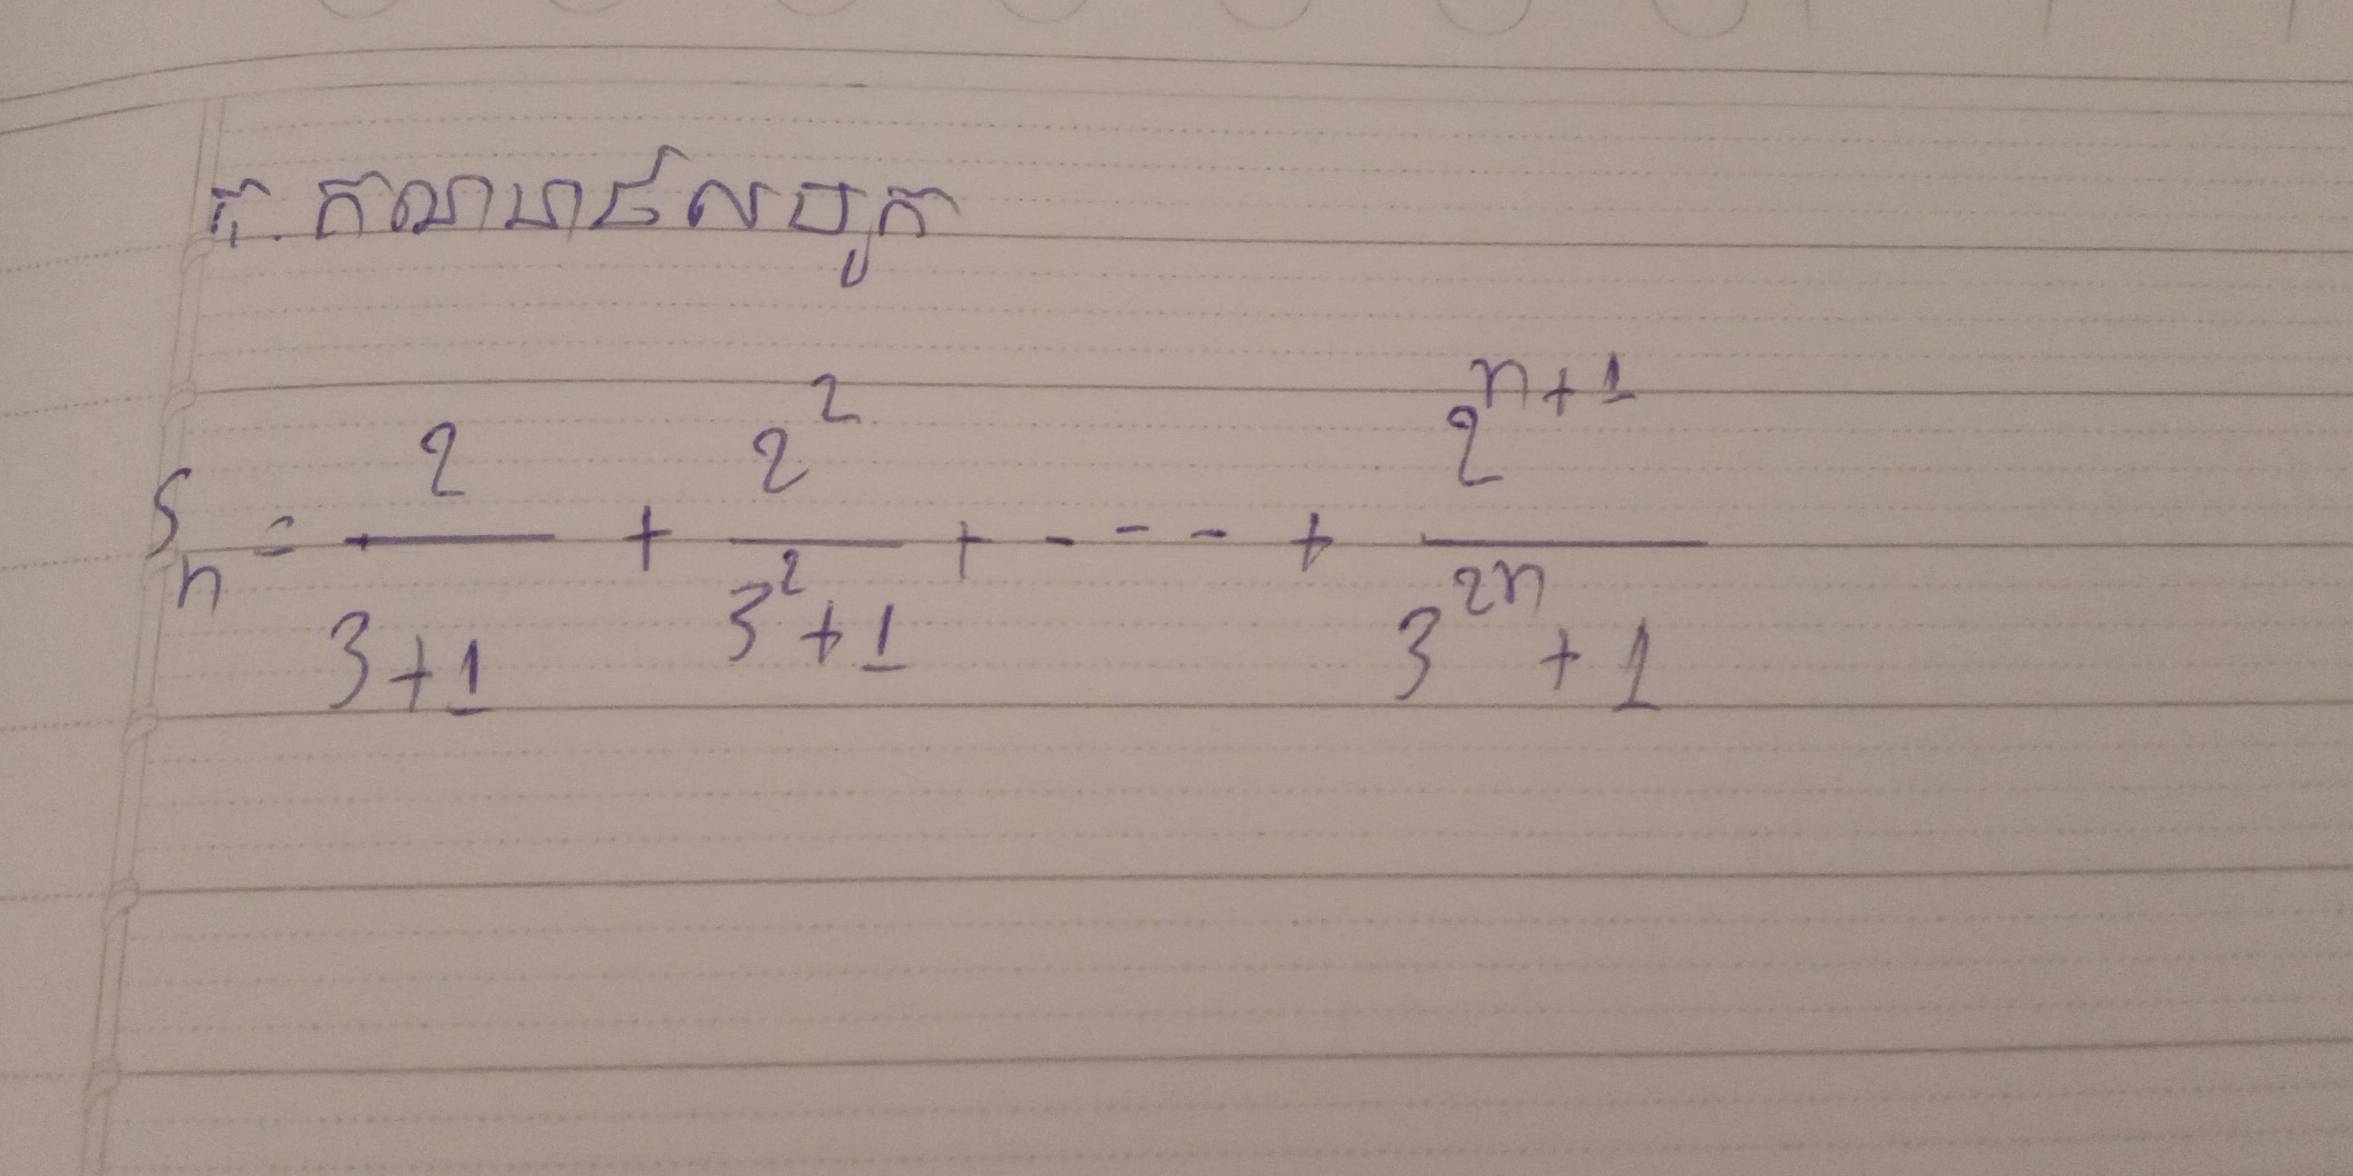 ក. គណនាផលបូក
S_n = 2/(3+1) + 2^2/(3^2+1) + - - - + 2^(n+1)/(3^(2n)+1)